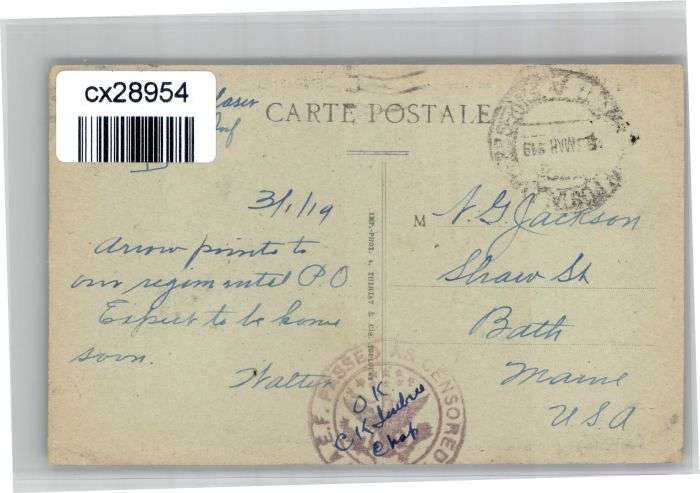 cx28954
CARTE POSTALE
3/1/19
Arrow points to
our regimental P.O.
Expect to be home
soon.
Walter
M N. G. Jackson
Shaw St
Bath
Maine
U.S.A
A.E.F. PASSED AS CENSORED
OK
Chap